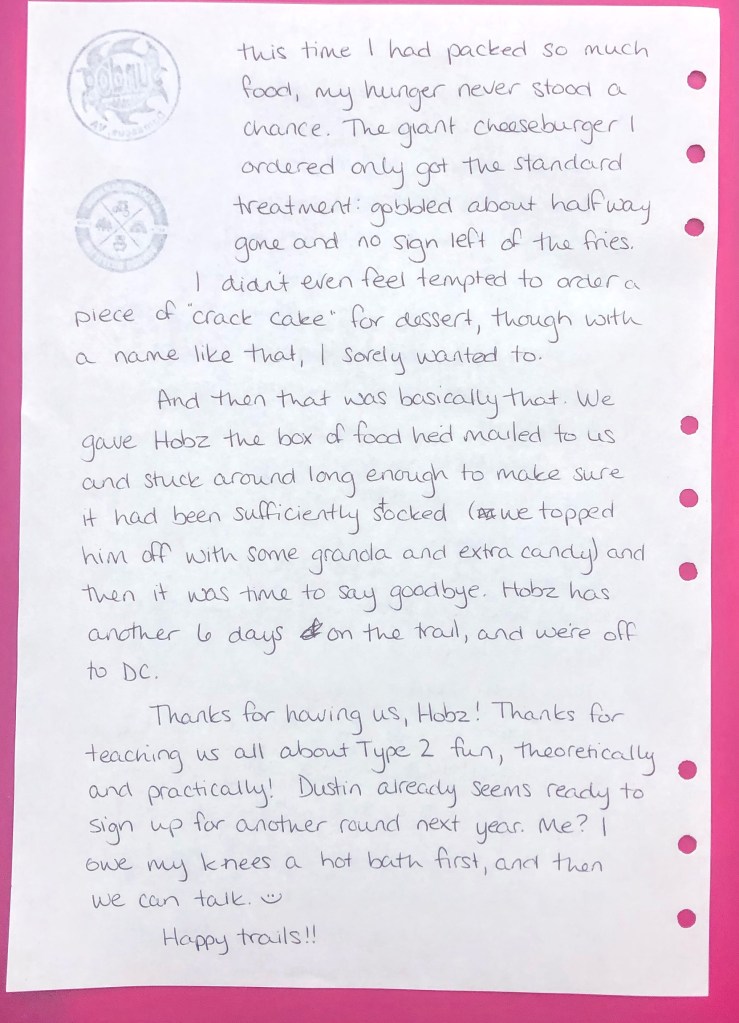 this time I had packed so much
food, my hunger never stood a
chance. The giant cheeseburger I
ordered only got the standard
treatment: gobbled about halfway
gone and no sign left of the fries.
I didn't even feel tempted to order a
piece of "crack cake" for dessert, though with
a name like that, I sorely wanted to.
And then that was basically that. We
gave Hobz the box of food he'd mailed to us
and stuck around long enough to make sure
it had been sufficiently stocked (we topped
him off with some granola and extra candy) and
then it was time to say goodbye. Hobz has
another 6 days on the trail, and we're off
to DC.
Thanks for having us, Hobz! Thanks for
teaching us all about Type 2 fun, theoretically
and practically! Dustin already seems ready to
sign up for another round next year. Me? I
owe my knees a hot bath first, and then
we can talk.
Happy trails!!